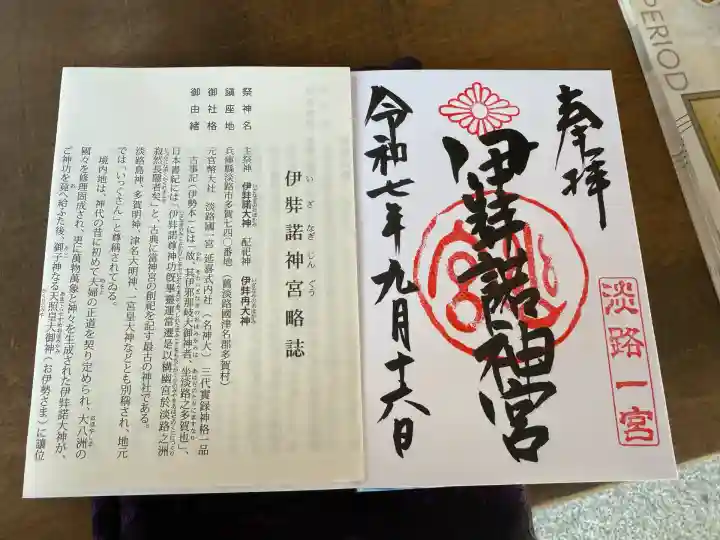 奉拝
伊弉諾神宮
令和七年九月十六日
淡路一宮
PERIOD
い ざ なぎ じん ぐう
伊弉諾神宮略誌
祭神名 主祭神 伊弉諾大神 配祀神 伊弉冉大神
鎭座地 兵庫縣淡路市多賀七四〇番地(舊淡路國津名郡多賀村)
御社格 元官幣大社 淡路國一宮 延喜式内社(名神大)三代實録神格一品
御由緒 古事記(伊勢本)には「故、其伊邪那岐大御神者、坐淡路之多賀也」、
日本書紀には「伊弉諾尊神功既畢靈運當遷是以構幽宮於淡路之洲
寂然長隱者矣」と、古典に當神宮の創祀を記す最古の神社である。
淡路島神、多賀明神、津名大明神、一宮皇大神などとも別稱され、地元
では「いっくさん」と尊稱されてゐる。
境内地は、神代の昔に初めて夫婦の正道を契り定められ、大八洲の
國々を修理固成され、更に萬物萬象と神々を生成された伊弉諾大神が、
ご神功を竟へ給ふた後、御子神なる天照皇大御神(お伊勢さま)に讓位